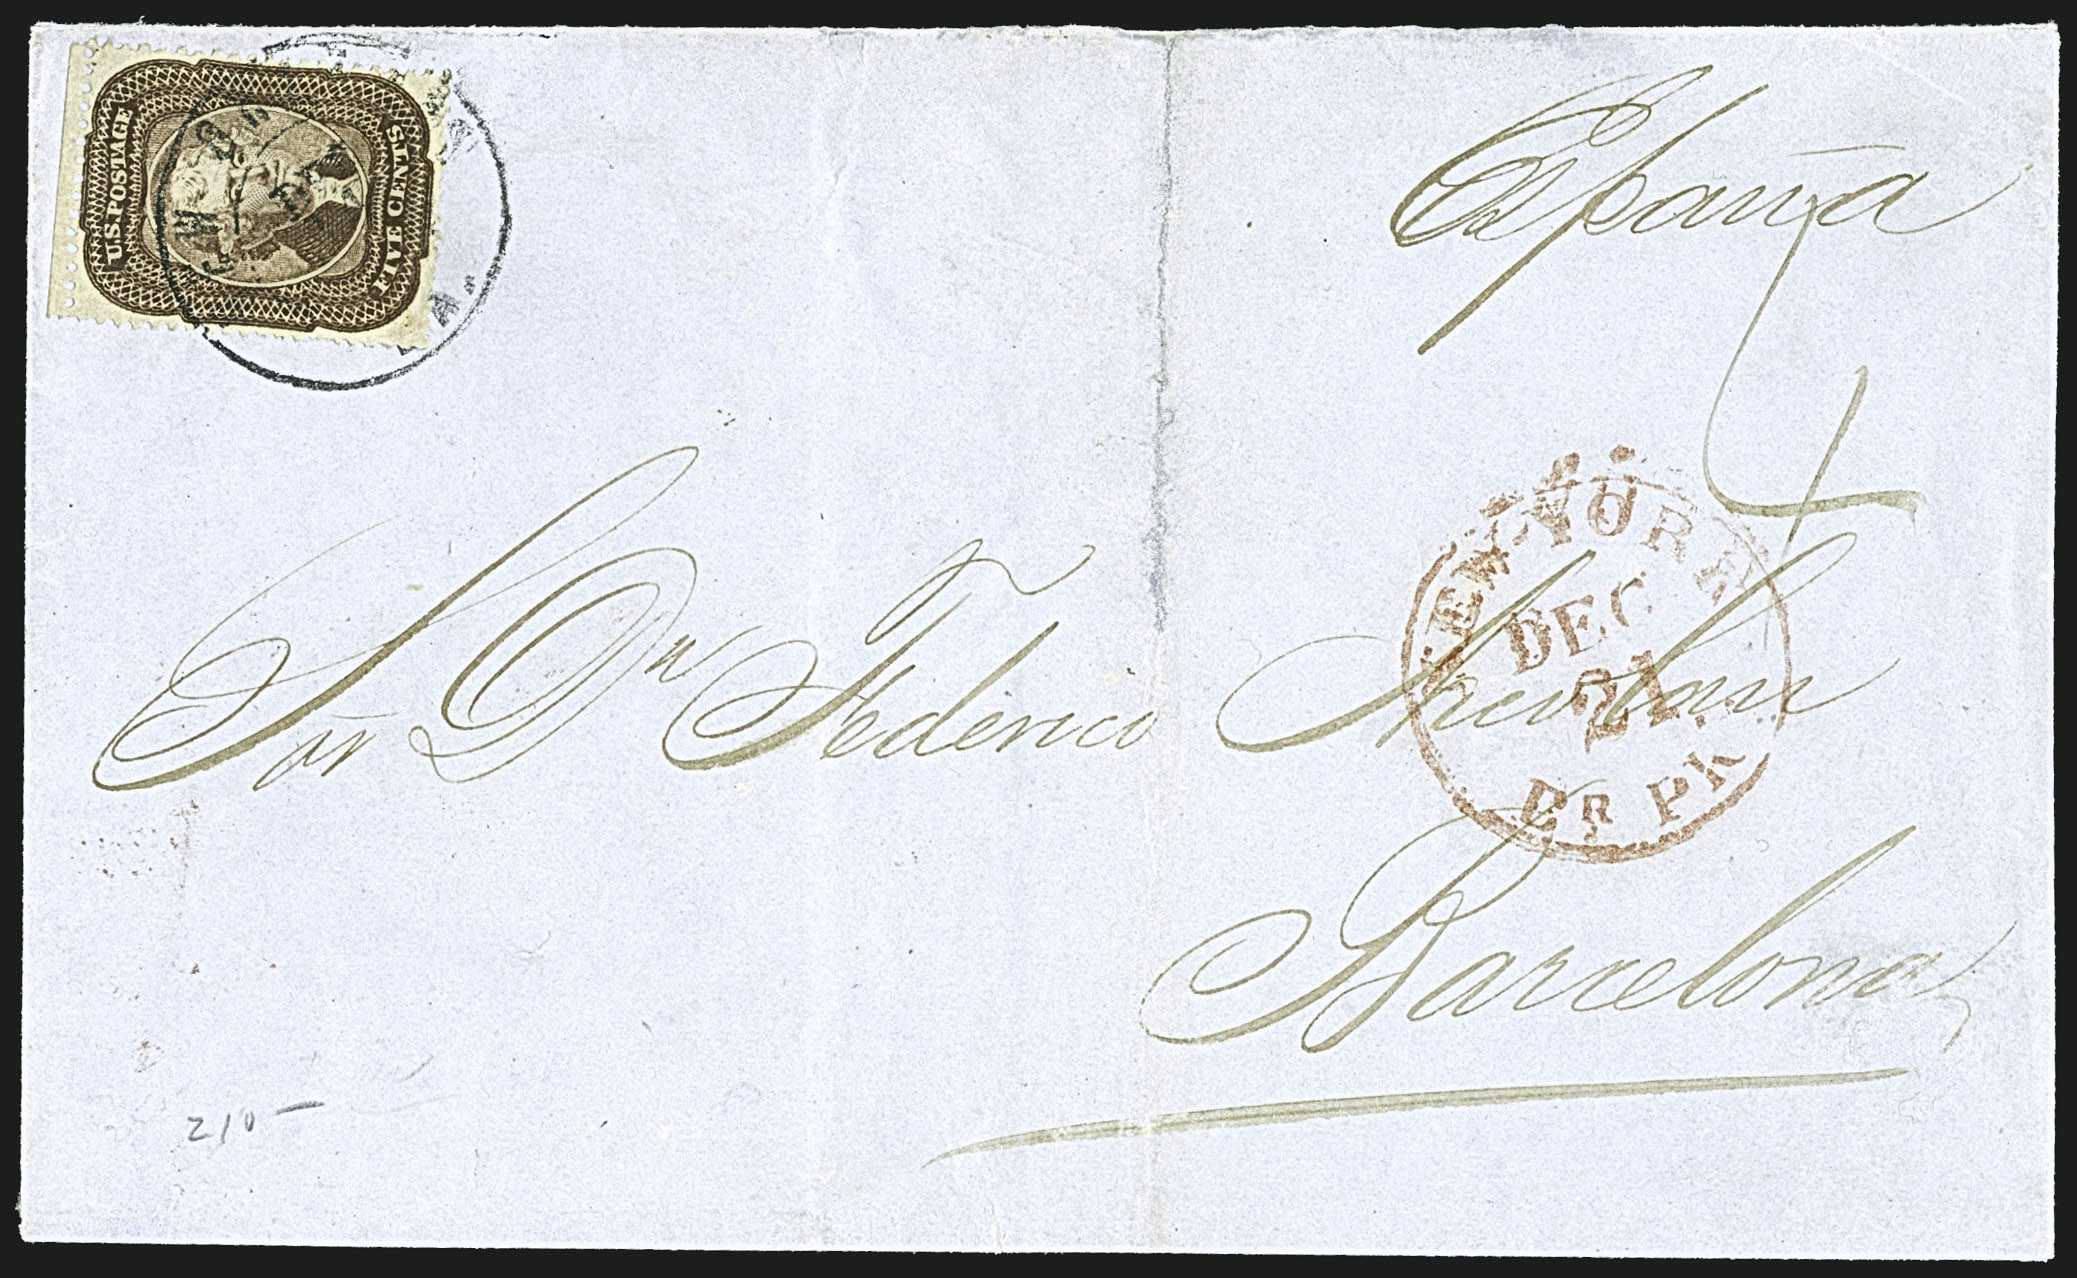 U.S. POSTAGE
FIVE CENTS
LA.
España
4
NEW-YORK
DEC
21
BR PK
Sor Dn Federico
Barcelona
210-